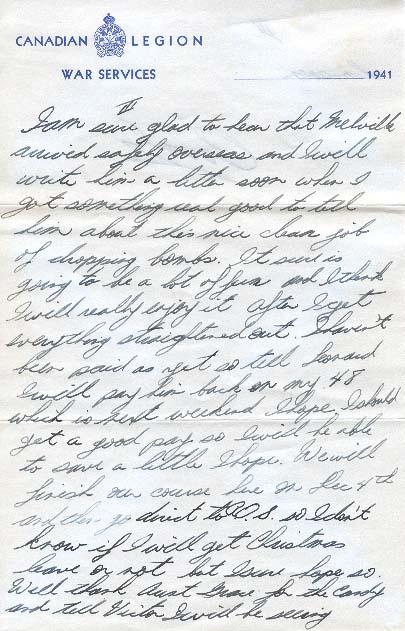 CANADIAN LEGION
WAR SERVICES
1941
II
I am sure glad to hear that Melville
arrived safely overseas and I will
write him a letter soon when I
got something real good to tell
him about this nice clean job
of dropping bombs. It sure is
going to be a lot of fun and I think
I will really enjoy it after I get
everything straightened out. I haven't
been paid as yet so tell Leonard
I will pay him back on my 48
which is next weekend I hope. I should
get a good pay so I will be able
to save a little I hope. We will
finish our course here on Dec 8th
and then go direct to A.O.S. so I don't
know if I will get Christmas
leave or not but I sure hope so.
Well thank Aunt Grace for the Candy
and tell Victor I will be seeing